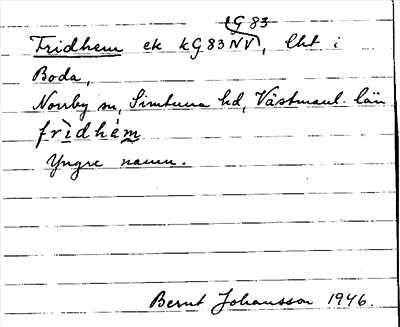 G 83
Fridhem ek kG83NV, lht i
Boda,
Norrby sn, Simtuna hd, Västmanl. län
frìdhém
Yngre namn.
Bernt Johansson 1946.